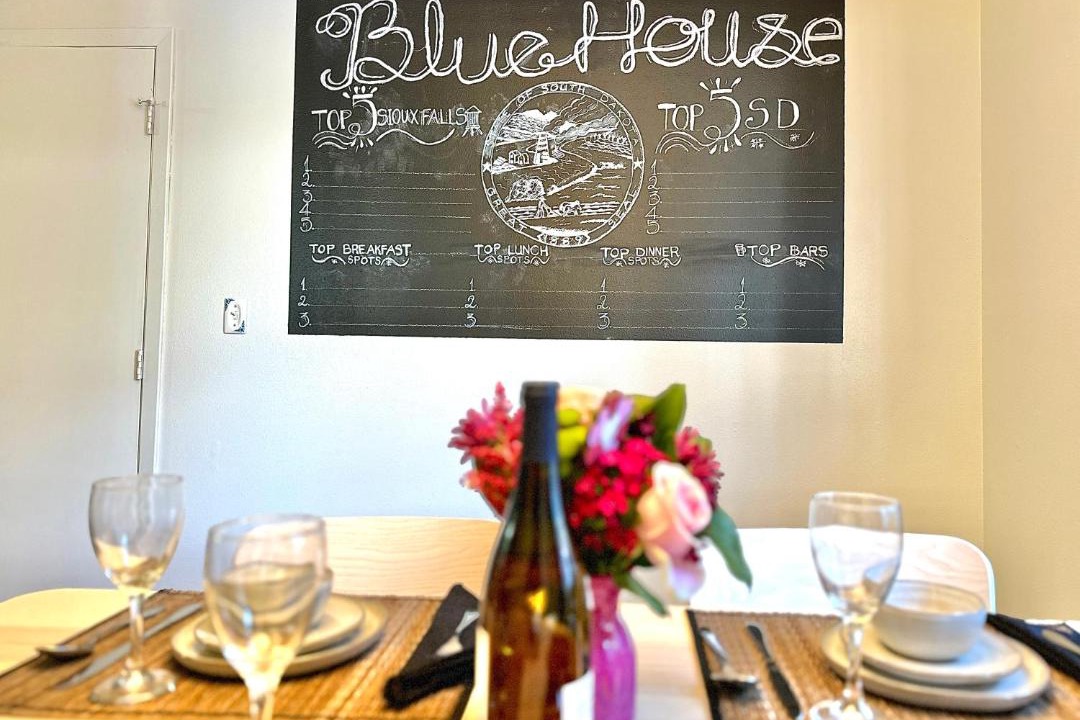 Blue House
TOP 5 SIOUX FALLS
TOP 5 SD
OF SOUTH DAKOTA
GREAT SEAL
1889
1.
2.
3.
4.
5.
1.
2.
3.
4.
5.
TOP BREAKFAST
SPOTS
TOP LUNCH
SPOTS
TOP DINNER
SPOTS
TOP BARS
1.
2.
3.
1.
2.
3.
1.
2.
3.
1.
2.
3.